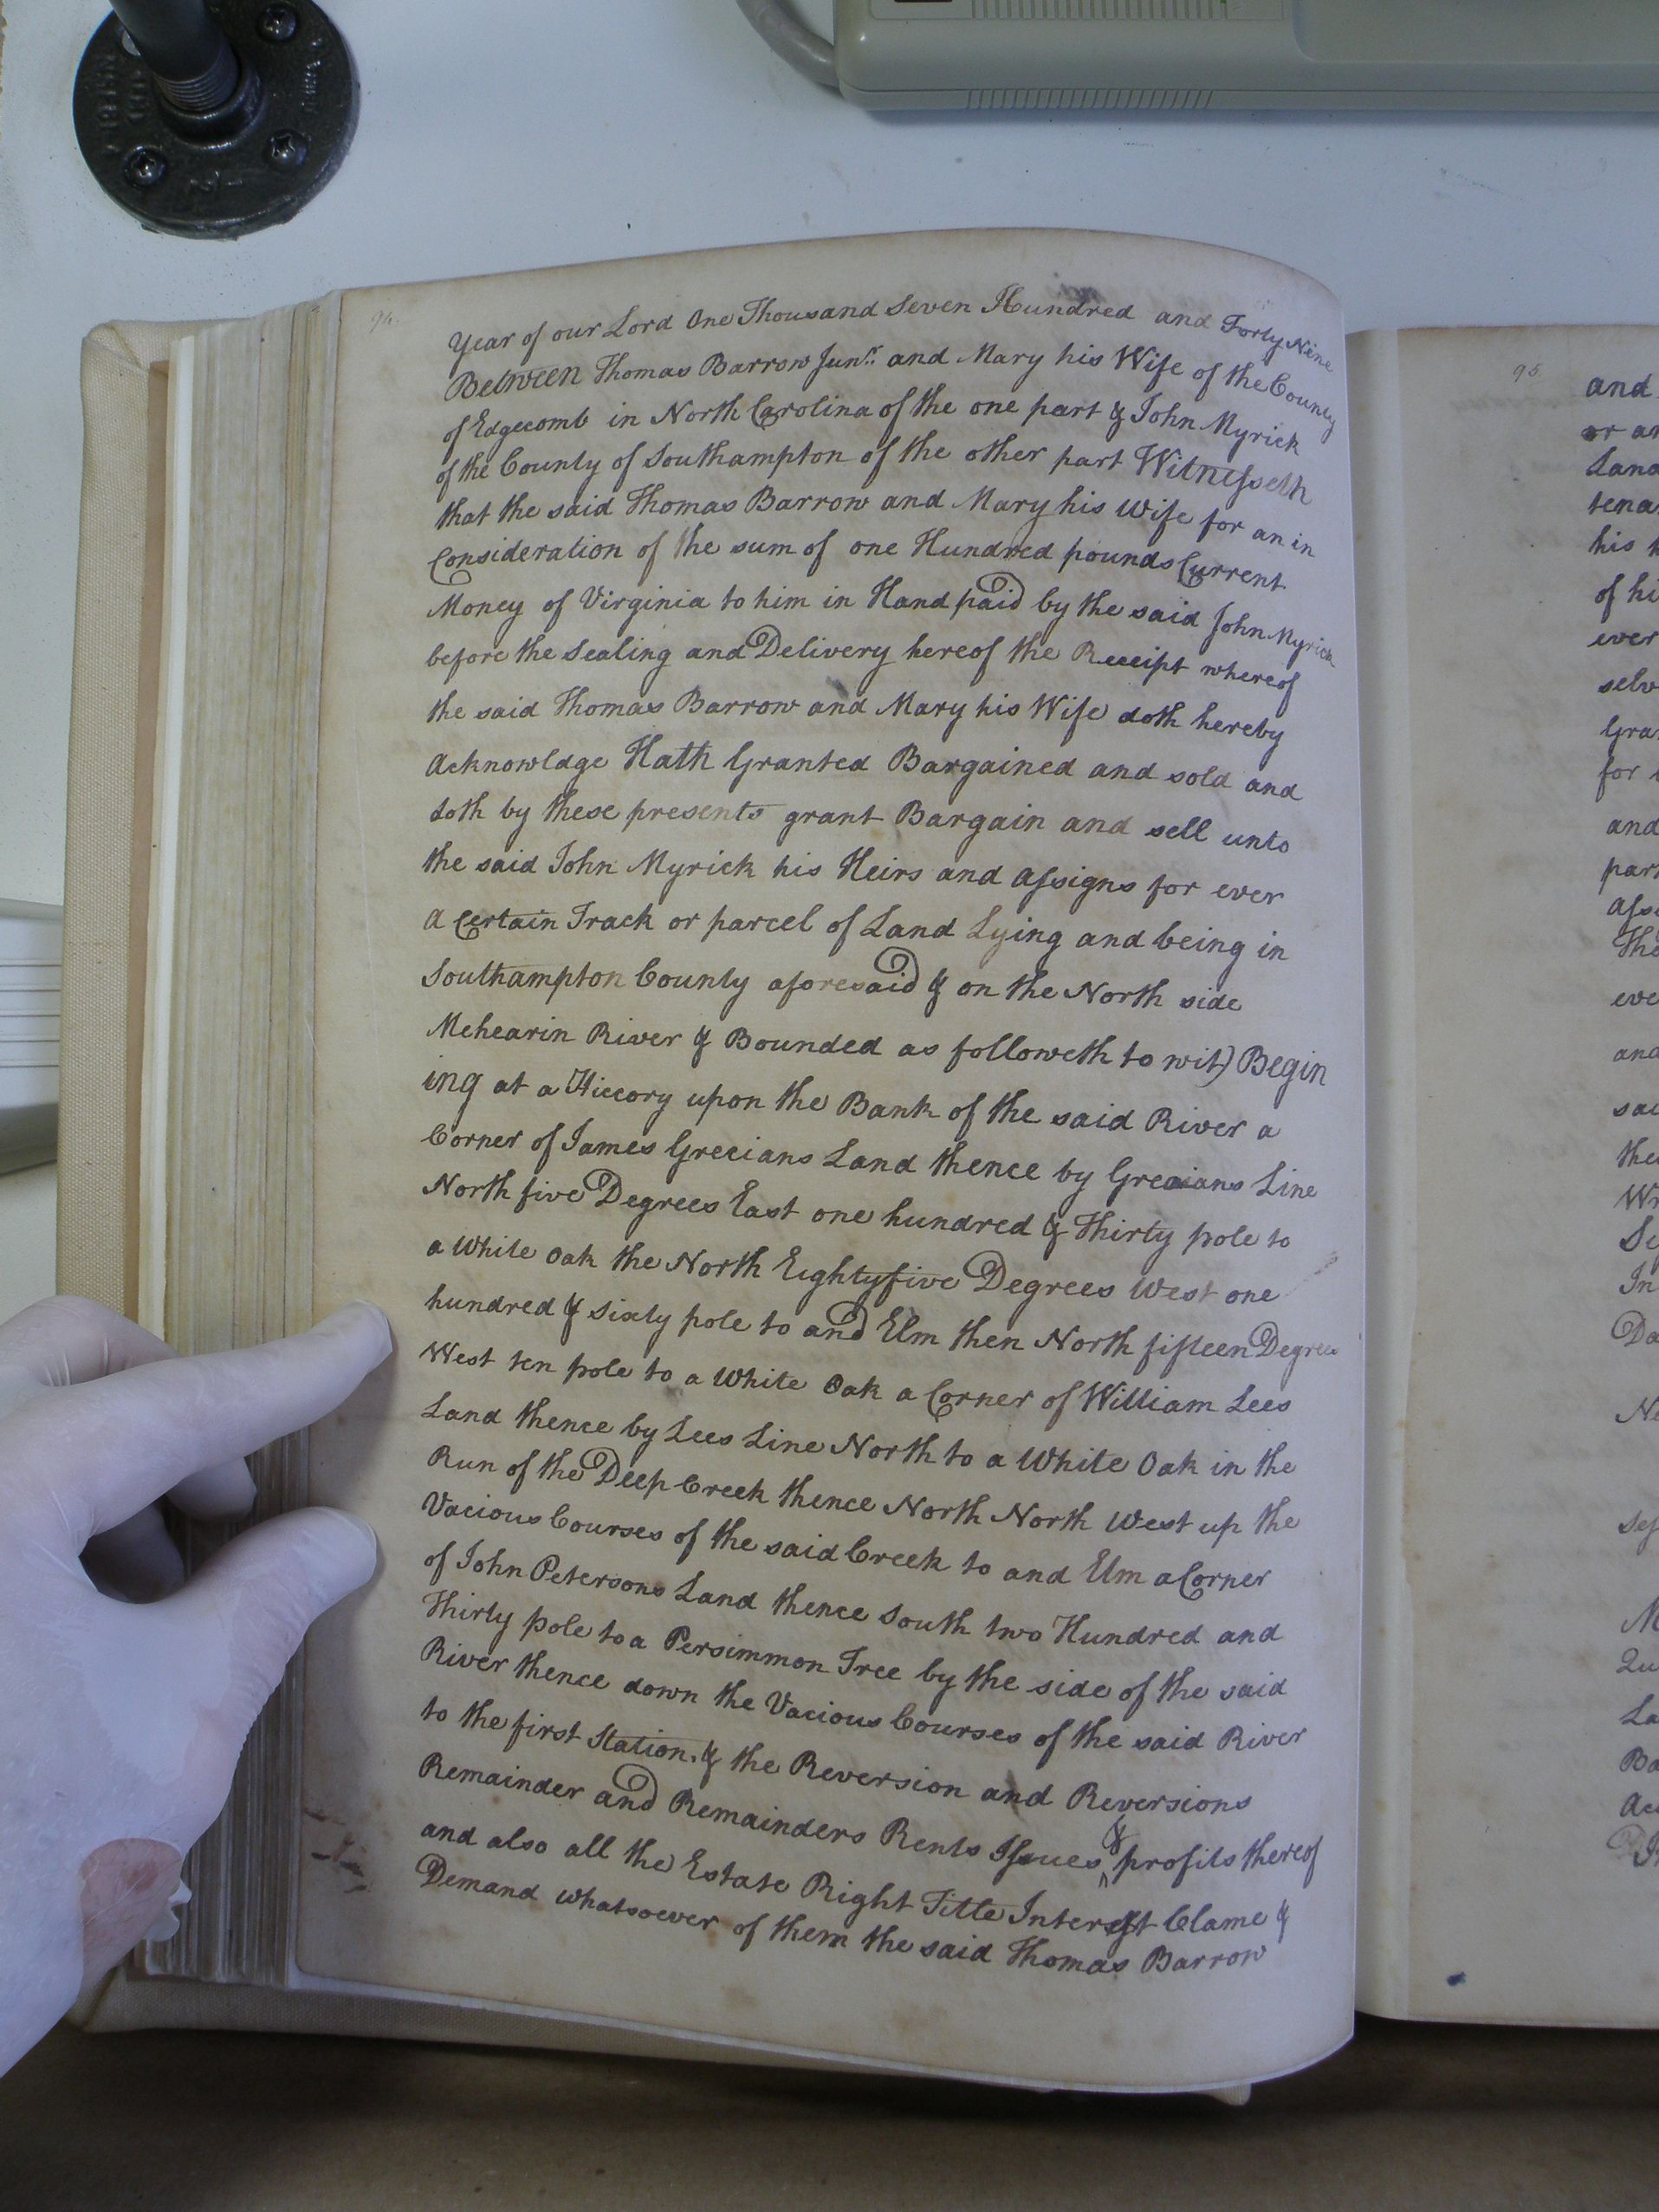 94.
Year of our Lord One Thousand Seven Hundred and Forty Nine
Between Thomas Barrow Junr. and Mary his Wife of the County
of Edgecomb in North Carolina of the one part & John Myrick
of the County of Southampton of the other part Witnesseth
that the said Thomas Barrow and Mary his Wife for an in
Consideration of the sum of one Hundred pounds Current
Money of Virginia to him in Hand paid by the said John Myrick
before the Sealing and Delivery hereof the Receipt whereof
the said Thomas Barrow and Mary his Wife doth hereby
Acknowldge Hath Granted Bargained and sold and
doth by these presents grant Bargain and sell unto
the said John Myrick his Heirs and Assigns for ever
a Certain Track or parcel of Land Lying and being in
Southampton County aforesaid & on the North side
Mehearin River & Bounded as followeth to wit) Begin
ing at a Hiccory upon the Bank of the said River a
Corner of James Grecians Land thence by Grecians Line
North five Degrees East one hundred & Thirty pole to
a White Oak the North Eightyfive Degrees West one
hundred & sixty pole to and Elm then North fifteen Degrees
West ten pole to a White Oak a Corner of William Lees
Land thence by Lees Line North to a White Oak in the
Run of the Deep Creek thence North North West up the
Vacious Courses of the said Creek to and Elm a Corner
of John Petersons Land thence South two Hundred and
Thirty pole to a Persimmon Tree by the side of the said
River thence down the Vacious Courses of the said River
to the first Station. & the Reversion and Reversions
Remainder and Remainders Rents Issues & profits thereof
and also all the Estate Right Title Interest Clame &
Demand whatsoever of them the said Thomas Barrow
95
and
or
Land
his
of
ever
for
and
and